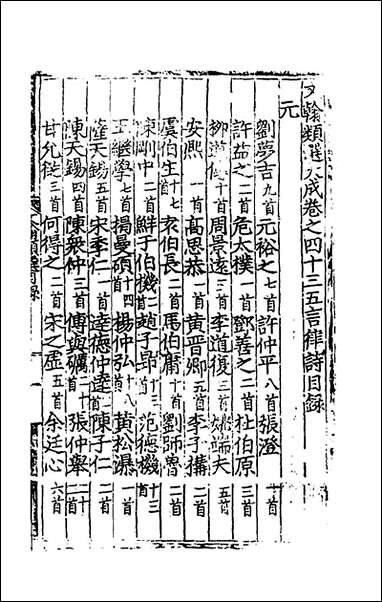 文翰類選大成卷之四十三五言律詩目錄
元
劉夢吉九首 元裕之七首 許仲平八首 張澄一首
許益之二首 危太樸一首 鄧善之二首 杜伯原三首
柳道傳十首 周景遠三首 李道復三首 姚端夫五首
安熙一首 高思恭一首 黃晉卿五首 李子構二首
虞伯生十七首 袁伯長二首 馬伯庸十首 劉師魯二首
陳剛中二首 鮮于伯機二首 趙子昂十三首 范德機十三首
王繼學七首 揭曼碩十四首 楊仲弘十八首 黃松瀑一首
薩天錫二首 宋季仁一首 達德仲達二首 陳子仁二首
陳天錫四首 陳衆仲三首 傅與礪二十首 張仲舉二十二首
甘允從三首 何得之二首 宋之虛五首 余廷心六首